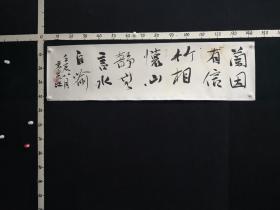 蘭因
有信
竹相
懷山
靜無
言水
自喻
八月